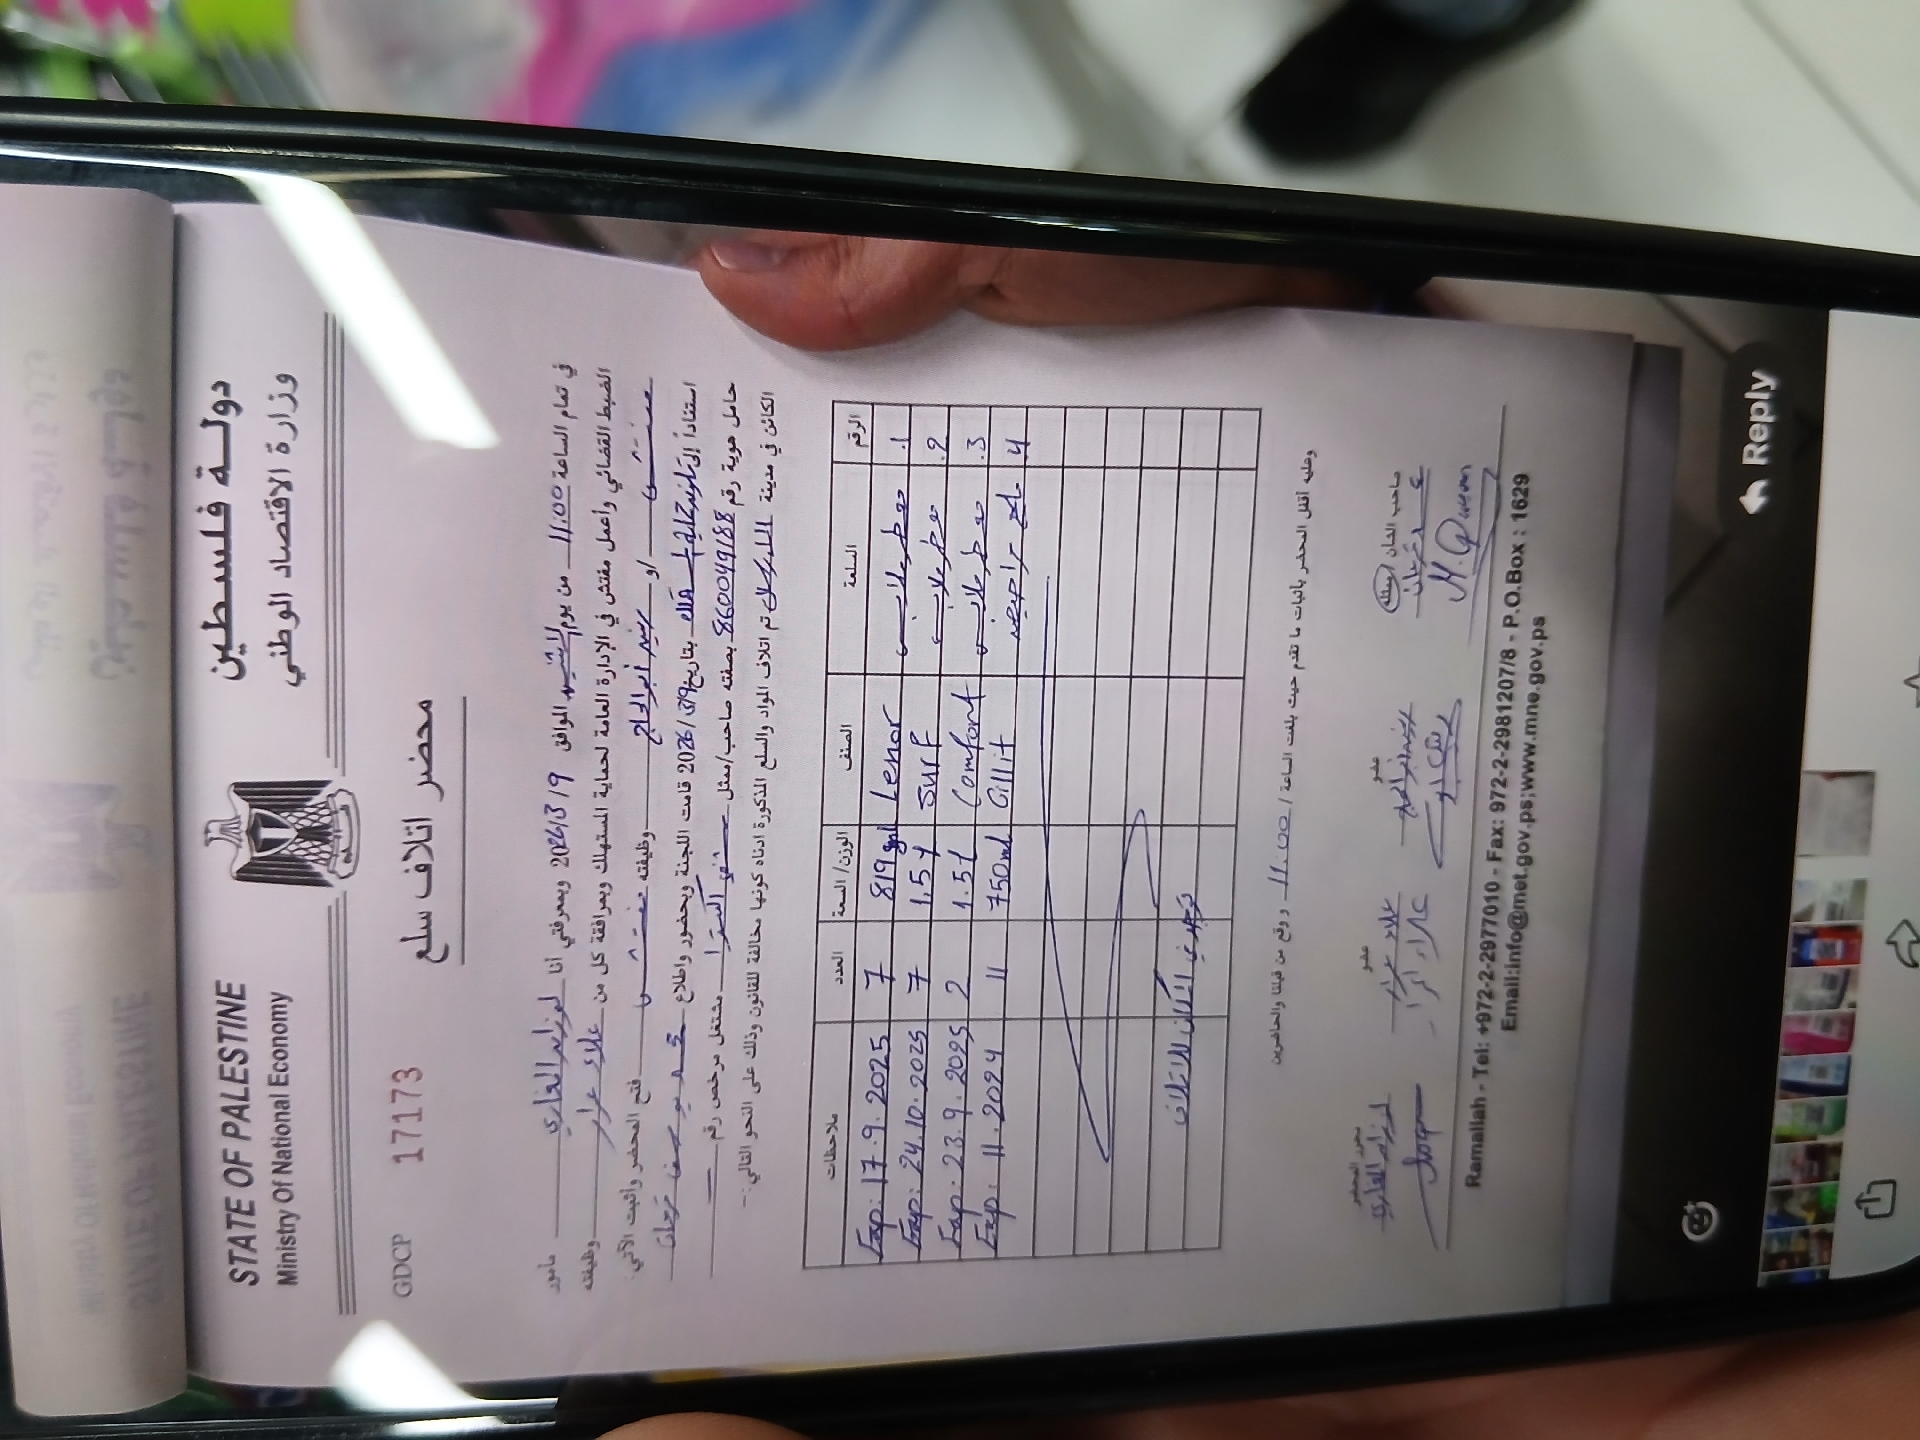 دولة فلسطين
وزارة الاقتصاد الوطني
STATE OF PALESTINE
Ministry Of National Economy
محضر اتلاف سلع
GDCP 17173
في تمام الساعة 11:00 من يوم الاثنين الموافق 2026/3/9 وبمعرفتي أنا مأمور
الضبط القضائي وأعمل مفتش في الإدارة العامة لحماية المستهلك وبمرافقة كل من علاء وظيفته
مفتش و/أو أبو الحاج وظيفته مفتش فتح المحضر واثبت الآتي:
استناداً إلى بتاريخ 2026/3/9 قامت اللجنة وبحضور واطلاع محمد يوسف
حامل هوية رقم 860049188 بصفته صاحب/ممثل مشتغل مرخص رقم
الكائن في مدينة تم اتلاف المواد والسلع المذكورة ادناه كونها مخالفة للقانون وذلك على النحو التالي:-
الرقم السلعة الصنف الوزن/السعة العدد ملاحظات
1. معطر ملابس Lenor 819 ml 7 Exp: 17.9.2025
2. معطر ملابس Surf 1.5 l 7 Exp: 24.10.2025
3. معطر ملابس Comfort 1.5 l 2 Exp: 23.9.2025
4 Cillit 750ml 11 Exp: 11.2024
وعليه أقفل المحضر بإثبات ما تقدم حيث بلغت الساعة / 11:00 ووقع من قبلنا والحاضرين
صاحب الشأن عضو عضو محرر المحضر
Ramallah - Tel: +972-2-2977010 - Fax: 972-2-2981207/8 - P.O.Box : 1629
Email:info@met.gov.ps;www.mne.gov.ps
Reply